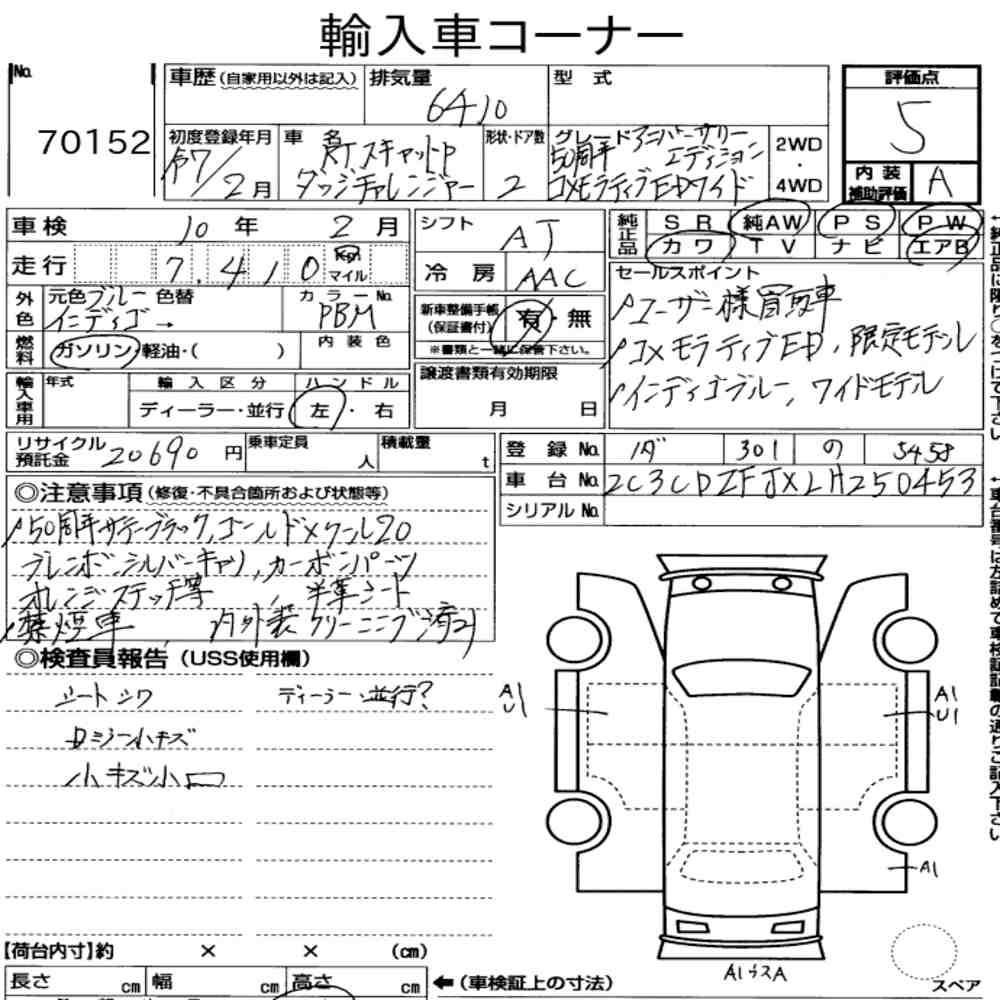 輸入車コーナー
No. 70152
車歴 (自家用以外は記入)
排気量 6410
型式
評価点 5
初度登録年月 R7/2月
車名 RTスキャットP ダッジチャレンジャー
形状・ドア数 2
グレード アニバーサリー
50周年 エディション
コメモラティブEDワイド
2WD・4WD
内装補助評価 A
車検 10年 2月
シフト AT
純正品 SR 純AW PS PW
カワ TV ナビ エアB
走行 7,410 Km マイル
冷房 AAC
セールスポイント
ユーザー様買取車
コメモラティブED, 限定モデル
インディゴブルー, ワイドモデル
外色 元色 ブルー 色替 インディゴ →
カラーNo. PBM
新車整備手帳 (保証書付) 有・無
※書類と一緒に保管下さい。
燃料 ガソリン・軽油・( )
内装色
譲渡書類有効期限
月 日
輸入車用 年式
輸入区分 ディーラー・並行
ハンドル 左・右
リサイクル預託金 20690円
乗車定員 人
積載量 t
登録No. 301 の 5458
車台No. 2C3CDZFJXLH250453
シリアルNo.
◎注意事項 (修復・不具合箇所および状態等)
50周年サテンブラック, ゴールドメ ール20
ブレンボ シルバーキャリ, カーボンパーツ
オレンジステッチ等, 半革シート
禁煙車, 内外装クリーニング済み
◎検査員報告 (USS使用欄)
シートシワ ディーラー・並行?
小キズ
小キズ小凹
A1
U1
A1
U1
A1
【荷台内寸】約 × × (cm)
長さ cm 幅 cm 高さ cm
←(車検証上の寸法)
スペア
←純正品に限り○をつけて下さい
←車台番号は左詰めで車検証記載の通りご記入下さい